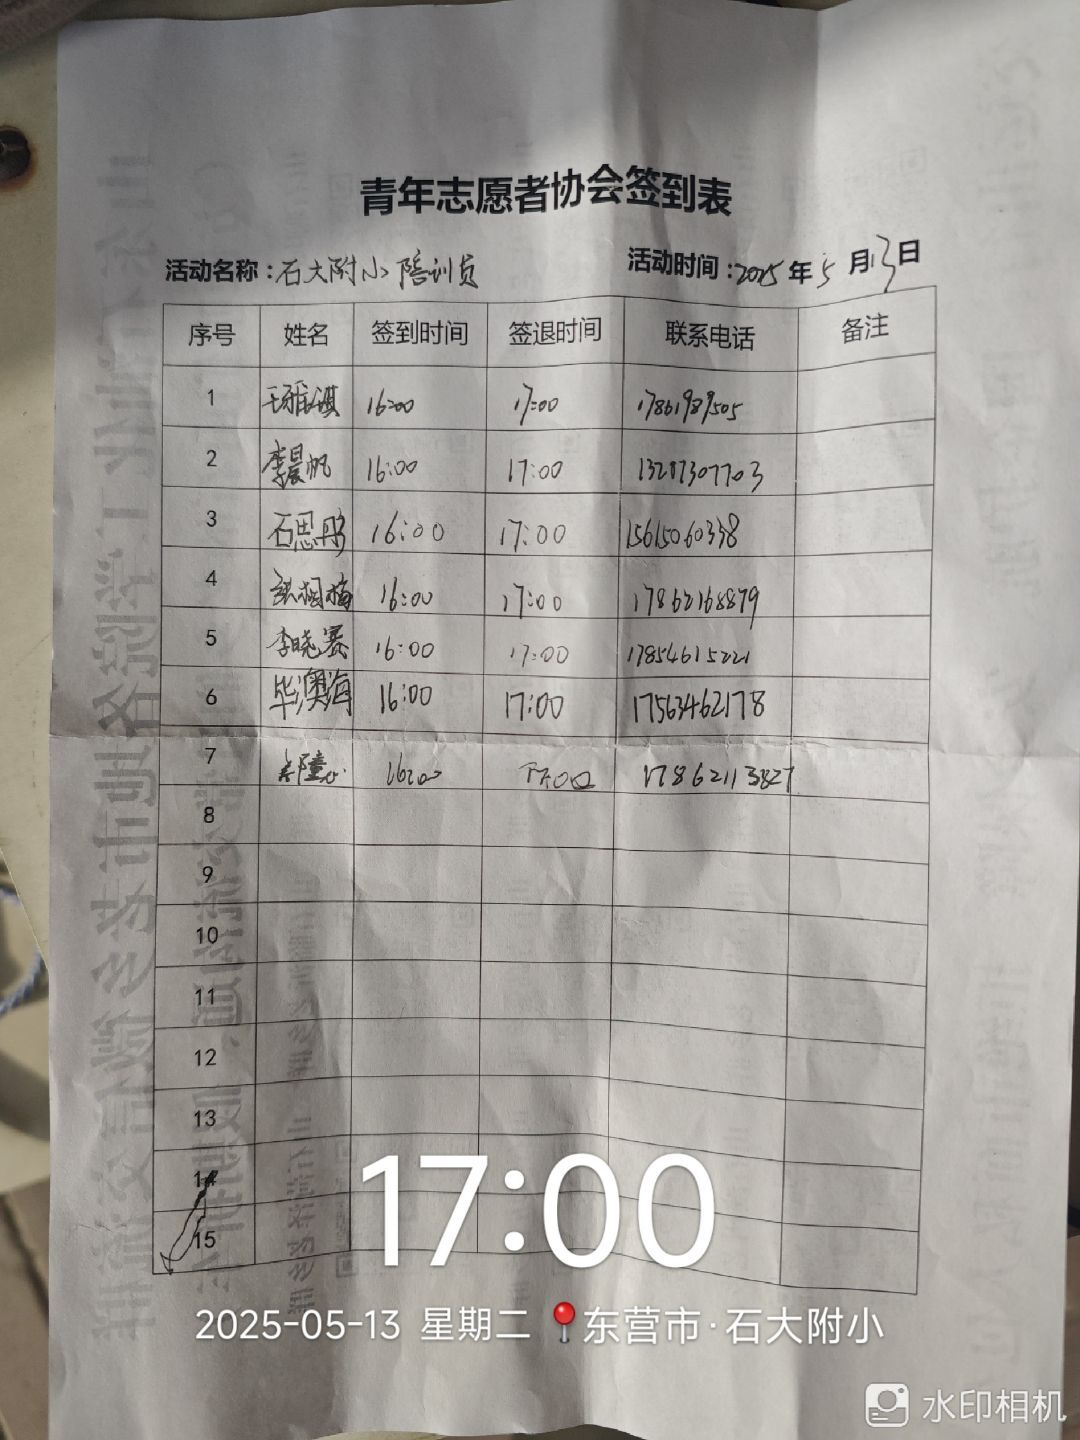 青年志愿者协会签到表
活动名称：石大附小陪训员 活动时间：2025年5月13日
序号 姓名 签到时间 签退时间 联系电话 备注
1 16:00 17:00 17861989505
2 李晨帆 16:00 17:00 13287307703
3 石思彤 16:00 17:00 15615060338
4 张相梅 16:00 17:00 17862168879
5 李晓赛 16:00 17:00 17854615221
6 毕澳海 16:00 17:00 17563462178
7 16:00 17:00 17862113827
8
9
10
11
12
13
14
15
17:00
2025-05-13 星期二 东营市·石大附小
水印相机